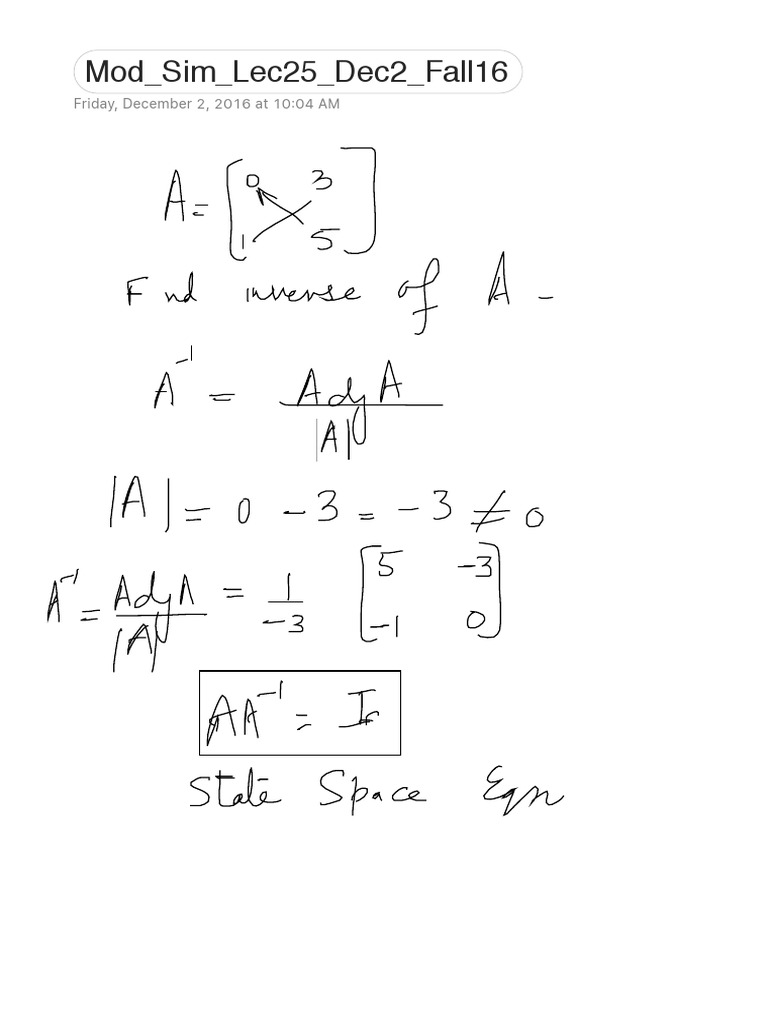 Mod_Sim_Lec25_Dec2_Fall16
Friday, December 2, 2016 at 10:04 AM
A = [0 3
1 5]
Fnd inverse of A -
A⁻¹ = Adj A
|A|
|A| = 0 - 3 = -3 ≠ 0
A⁻¹ = Adj A / |A| = 1 / -3 [5 -3
-1 0]
AA⁻¹ = I
State Space Eqn